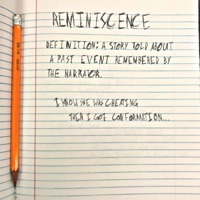 REMINISCENCE
DEFINITION: A STORY TOLD ABOUT
A PAST EVENT REMEMBERED BY
THE NARRATOR.
I KNOW SHE WAS CHEATING
THEN I GOT CONFORMATION...